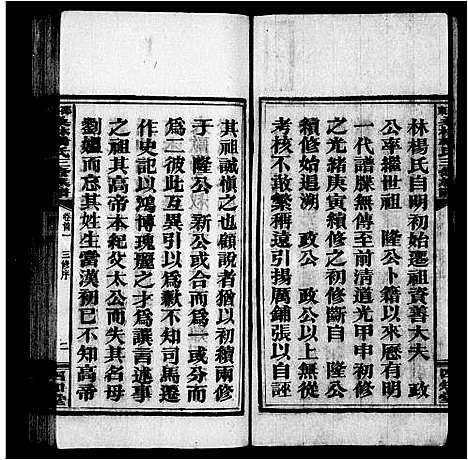 林楊氏自明初始遷祖資善大夫　政
公率繼世祖　隆公卜籍以來歷有明
一代譜牒無傳至前清道光甲申初修
之光緒庚寅續修之初修斷自　隆公
續修始追溯　政公　政公以上無從
考核不敢繁稱遠引揚厲鋪張以自誣
其祖誠慎之也顧說者猶以初續兩修
于　隆公　新公或合而爲一或分而
爲二彼此互異引以爲歉不知司馬遷
作史記以鴻博瑰麗之才爲讓青述事
之祖其高帝本紀父太公而失其名母
劉媼而忘其姓生當漢初已不知高帝
卷首一　三修序
二
四知堂